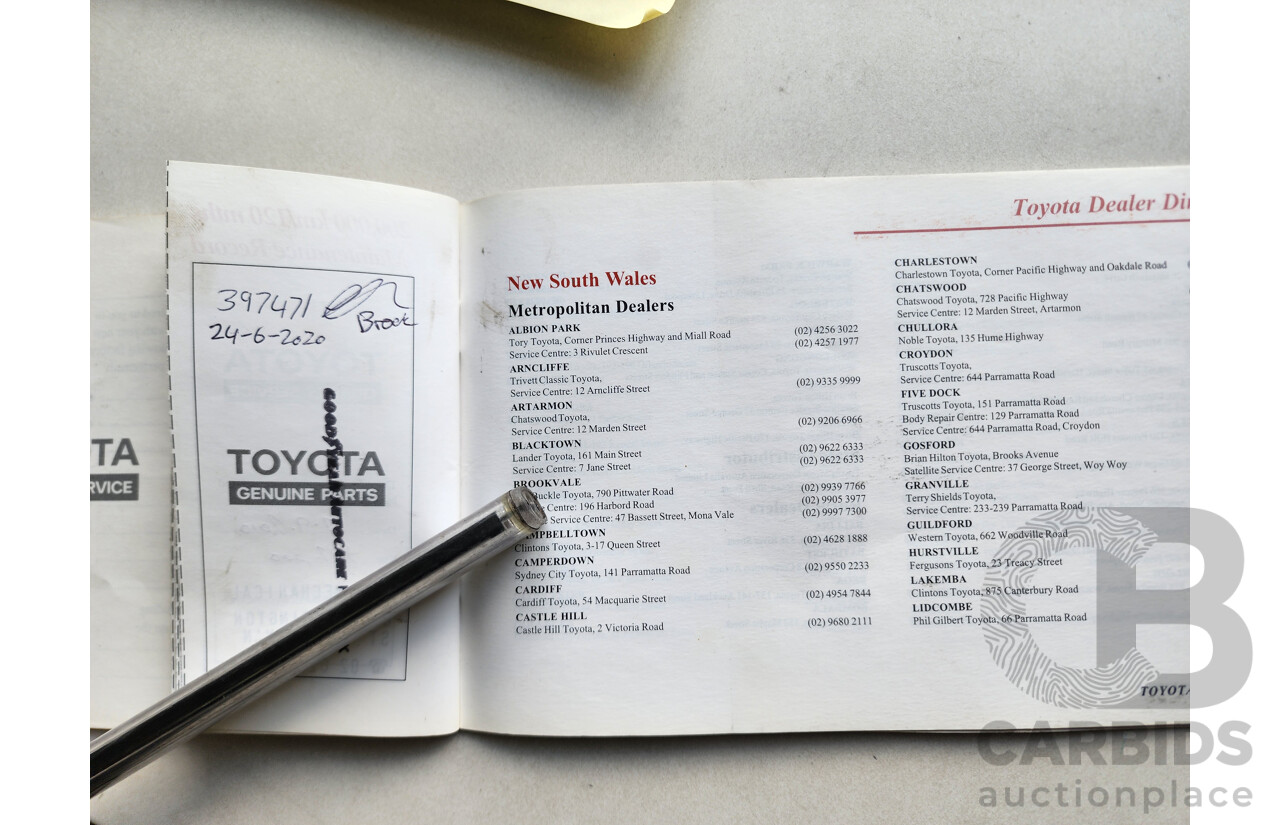 397471
Brock
24-6-2020
TOYOTA
GENUINE PARTS
GOODYEAR AUTOCARE
TA
RVICE
Toyota Dealer Di
New South Wales
Metropolitan Dealers
ALBION PARK
Tory Toyota, Corner Princes Highway and Miall Road (02) 4256 3022
Service Centre: 3 Rivulet Crescent (02) 4257 1977
ARNCLIFFE
Trivett Classic Toyota,
Service Centre: 12 Arncliffe Street (02) 9335 9999
ARTARMON
Chatswood Toyota,
Service Centre: 12 Marden Street (02) 9206 6966
BLACKTOWN
Lander Toyota, 161 Main Street (02) 9622 6333
Service Centre: 7 Jane Street (02) 9622 6333
BROOKVALE
Buckle Toyota, 790 Pittwater Road (02) 9939 7766
Centre: 196 Harbord Road (02) 9905 3977
Service Centre: 47 Bassett Street, Mona Vale (02) 9997 7300
AMPBELLTOWN
Clintons Toyota, 3-17 Queen Street (02) 4628 1888
CAMPERDOWN
Sydney City Toyota, 141 Parramatta Road (02) 9550 2233
CARDIFF
Cardiff Toyota, 54 Macquarie Street (02) 4954 7844
CASTLE HILL
Castle Hill Toyota, 2 Victoria Road (02) 9680 2111
CHARLESTOWN
Charlestown Toyota, Corner Pacific Highway and Oakdale Road
CHATSWOOD
Chatswood Toyota, 728 Pacific Highway
Service Centre: 12 Marden Street, Artarmon
CHULLORA
Noble Toyota, 135 Hume Highway
CROYDON
Truscotts Toyota,
Service Centre: 644 Parramatta Road
FIVE DOCK
Truscotts Toyota, 151 Parramatta Road
Body Repair Centre: 129 Parramatta Road
Service Centre: 644 Parramatta Road, Croydon
GOSFORD
Brian Hilton Toyota, Brooks Avenue
Satellite Service Centre: 37 George Street, Woy Woy
GRANVILLE
Terry Shields Toyota,
Service Centre: 233-239 Parramatta Road
GUILDFORD
Western Toyota, 662 Woodville Road
HURSTVILLE
Fergusons Toyota, 23 Treacy Street
LAKEMBA
Clintons Toyota, 875 Canterbury Road
LIDCOMBE
Phil Gilbert Toyota, 66 Parramatta Road
TOYOTA
CB
CARBIDS
auctionplace